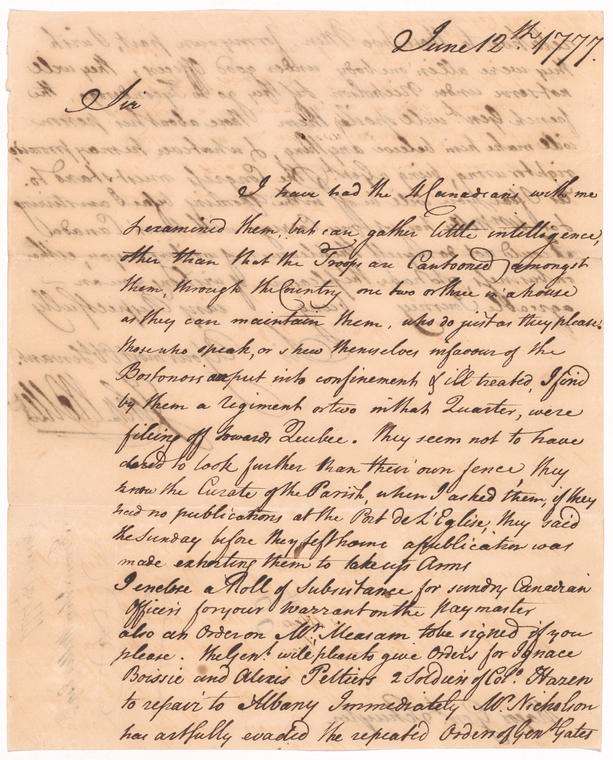 June 12th 1777.
Sir
I have had the 11 Canadians with me
& examined them, but can gather little intelligence,
other than that the Troops are Cantooned amongst
them, through the Country one two or three in a house
as they can maintain them, who do just as they please.
those who speak, or shew themselves in favour of the
Bostonois are put into confinement & ill treated, I find
by them a regiment or two in that Quarter, were
filing off towards Quebec. they seem not to have
dared to look further than their own fence, they
know the Curate of the Parish, when I asked them, if they
had no publications at the Port de L'Eglise, they said
the Sunday before they left home a publication was
made exhorting them to take up Arms
I enclose a Roll of Subsistance for sundry Canadian
Officers for your warrant on the paymaster
also an Order on Mr. Measam to be signed if you
please. the Genl. will please to give Orders for Ignace
Boissie and Alexis Peltiers 2 Soldiers of Colo. Hazen
to repair to Albany Immediately Mr. Nicholson
has artfully evaded the repeated Orders of Genl Gates